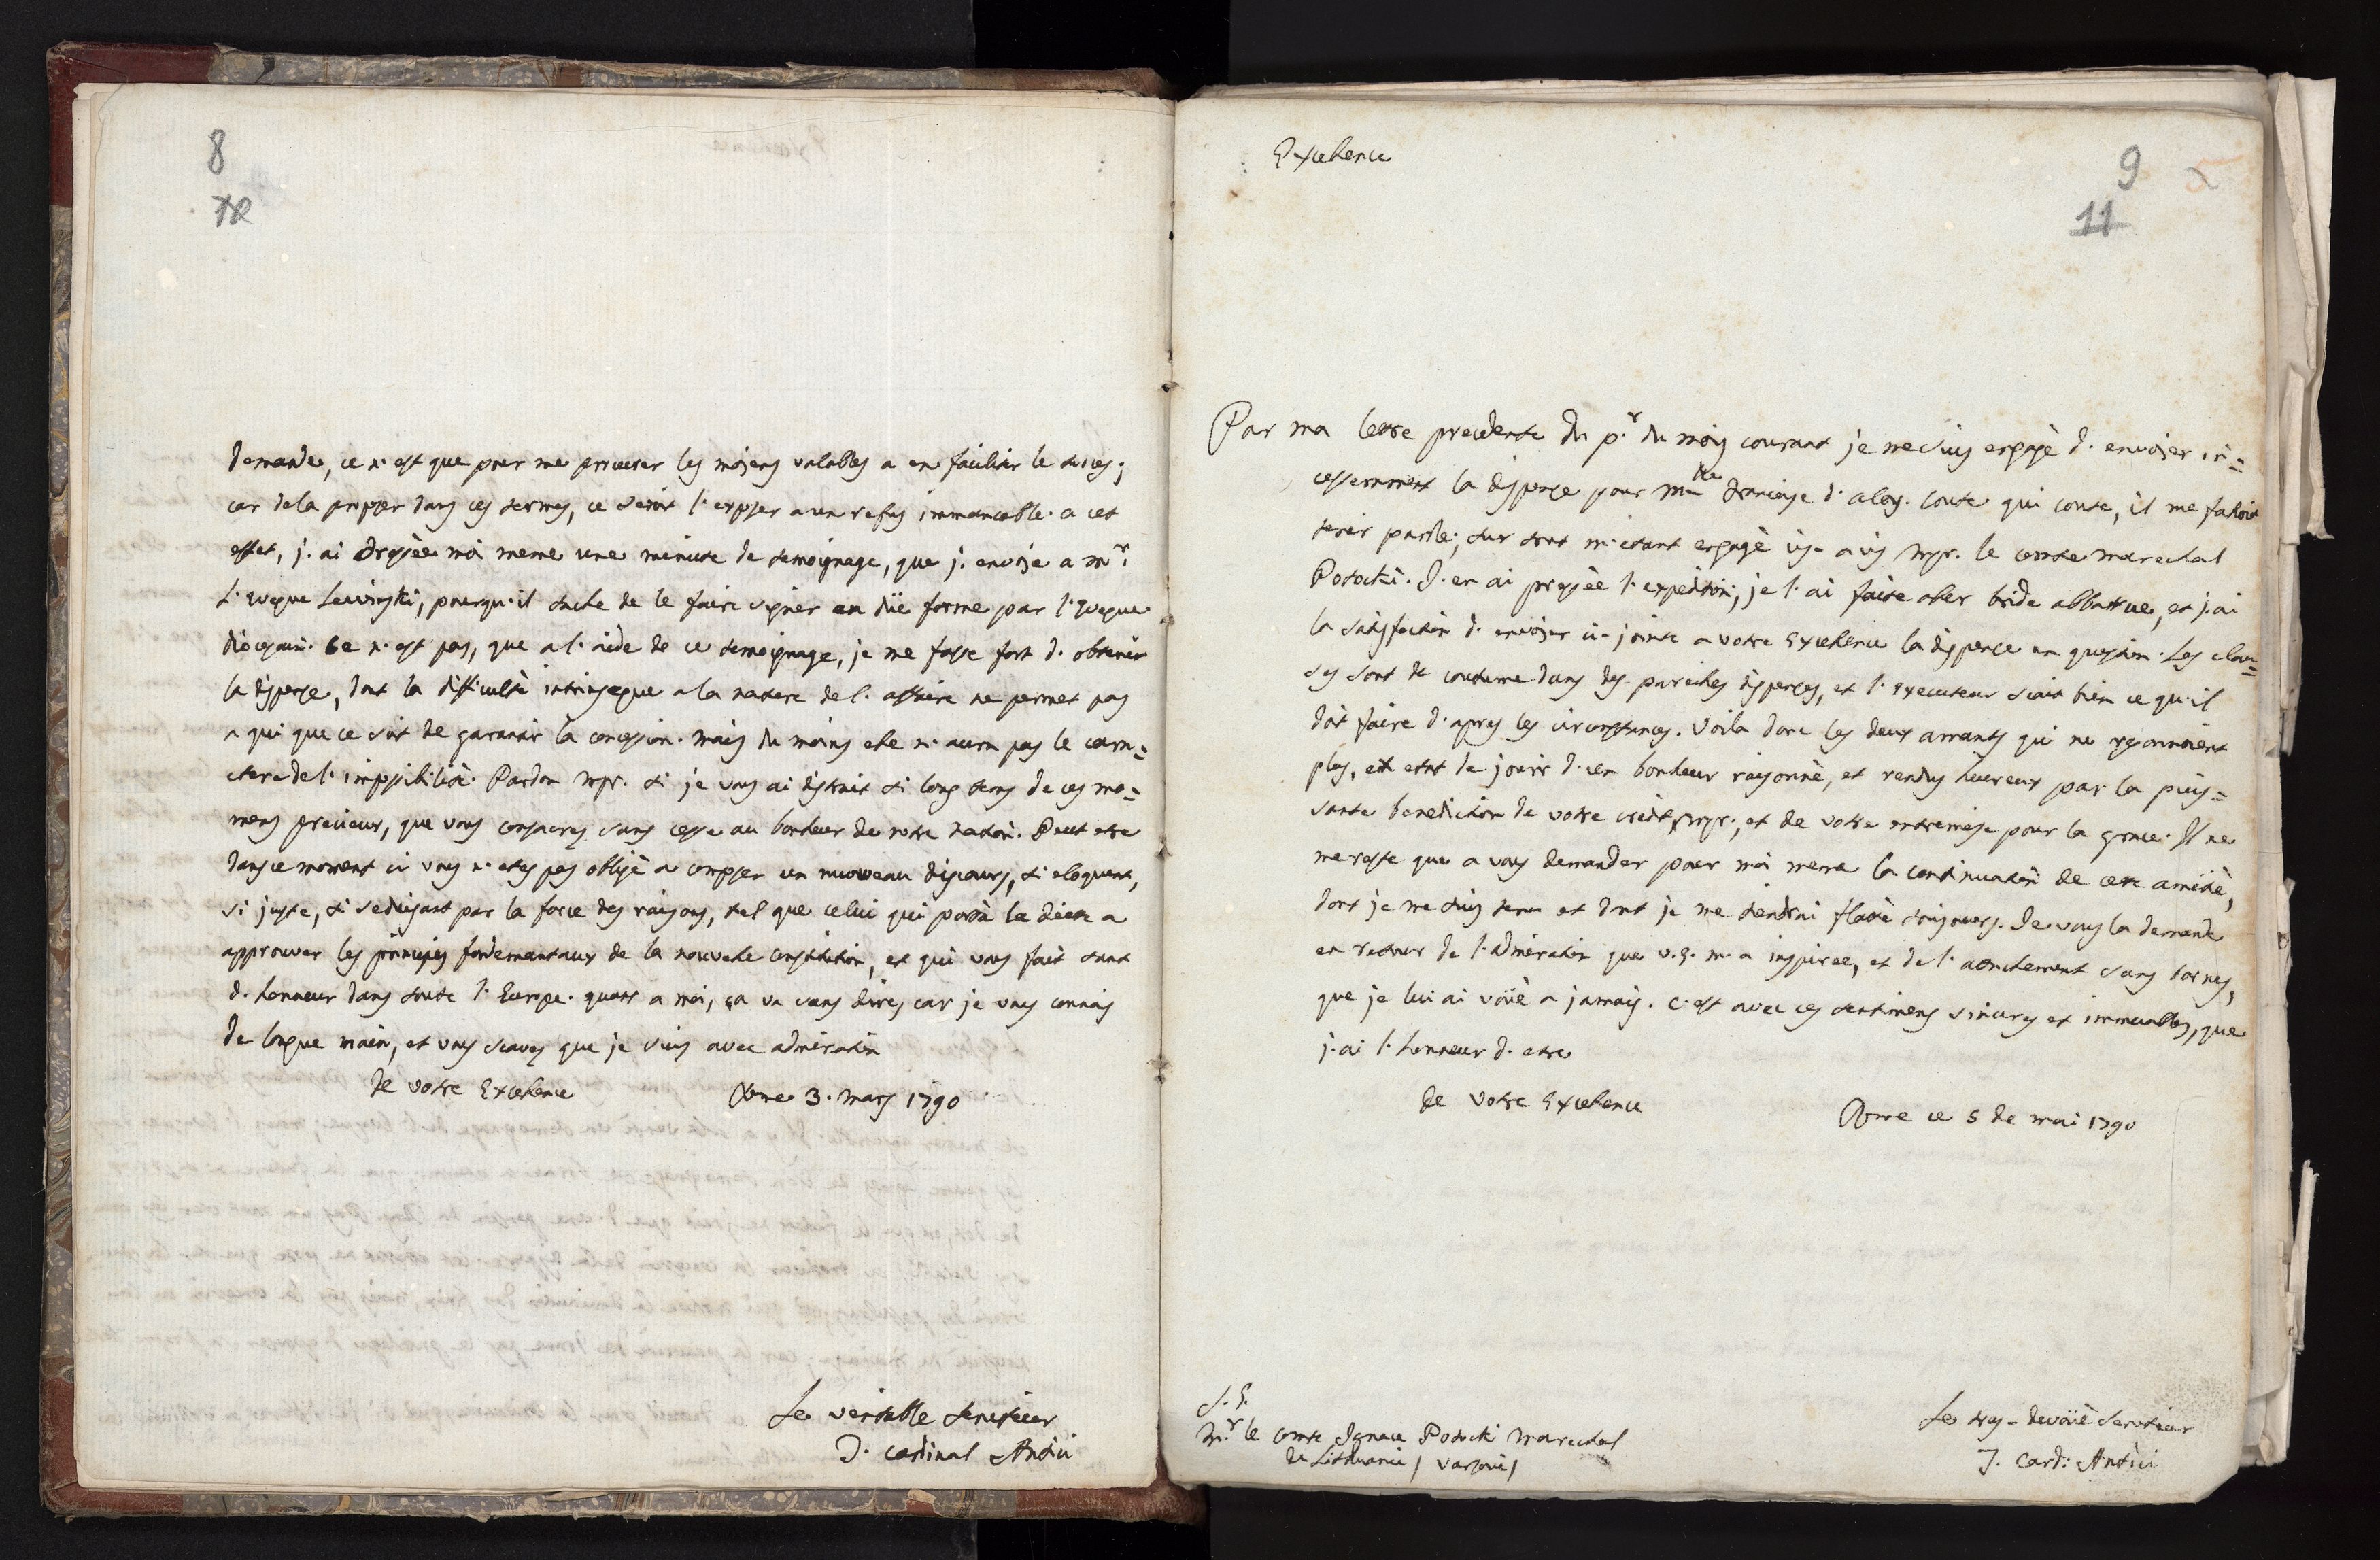 8
demande, ce n'est que pour me procurer les moiens valables a en faciliter le succes;
car de la proposer dans ces termes, ce seroit l'exposer a un refus immancable. a cet
effet, j'ai dressée moi meme une minute de temoignage, que j'envoie a Mr.
L'eveque Lewinski, pourqu'il tache de le faire signer en düe forme par l'eveque
diocesain. Ce n'est pas, que a l'aide de ce temoignage, je me fasse fort d'obtenir
la dispense, dont la difficultè intrinseque a la nature de l'affaire ne permet pas
a qui que ce soit de garantir la concession. mais du moins elle n'aura pas le cara=
ctere de l'impossibilitè. Pardon Mgr. si je vous ai distrait si long tems de ces mo=
mens precieux, que vous consacrez sans cesse au bonheur de notre nation. Peut etre
dans ce moment ci vous n'etes pas obligè a composer un nuoveau discours, si eloquent,
si juste, si seduisant par la force des raisons, tel que celui qui porta la diete a
approuver les principes fondemantaux de la nouvelle constitution, et qui vous fait tant
d'honneur dans toute l'Europe. quant a moi, ça va sans dire, car je vous connais
de longue main, et vous scavez que je suis avec admiration
de votre Excellence Rome 3. Mars 1790
Le veritable serviteur
J. cardinal Antici
Excellence
9
11
Par ma lettre precedente du p.r du mois courant je me suis engagè d'envoier in=
cessemment la dispense pour Mlle Françoise d'aloy. Coute qui coute, il me falloit
tenir parole; sur tout m'etant engagè vis-a vis Mgr. le comte marechal
Potocki. J'en ai pressèe l'expedition; je l'ai faite aller bride abbattue, et j'ai
la satisfaction d'envoier ci-jointe a votre Excellence la dispense en question. Les clau=
ses sont de coutume dans des pareilles dispenses, et l'executeur scait bien ce qu'il
doit faire d'apres les circonstances. Voila donc les deux amants qui ne resonnoient
plus, en etat de jouir d'un bonheur raisonnè, et rendus heureux par la puis=
sante benediction de votre credit, Mgr., et de votre entremise pour la grace. Il ne
me reste que a vous demander pour moi meme la continuation de cette amitiè,
dont je me suis tenu et dont je me tiendrai flattè toujours. Je vous la demande
en retour de l'admiration que V.E. m'a inspiree, et de l'attachement sans bornes,
que je lui ai voüè a jamais. C'est avec ces sentimens sinceres et immuables, que
j'ai l'honneur d'etre
de votre Excellence Rome ce 5 de mai 1790
S.E.
Mr. le comte Ignace Potocki Marechal
de Lithuanie / Varsovie /
Le tres-devoüè serviteur
J. Card: Antici